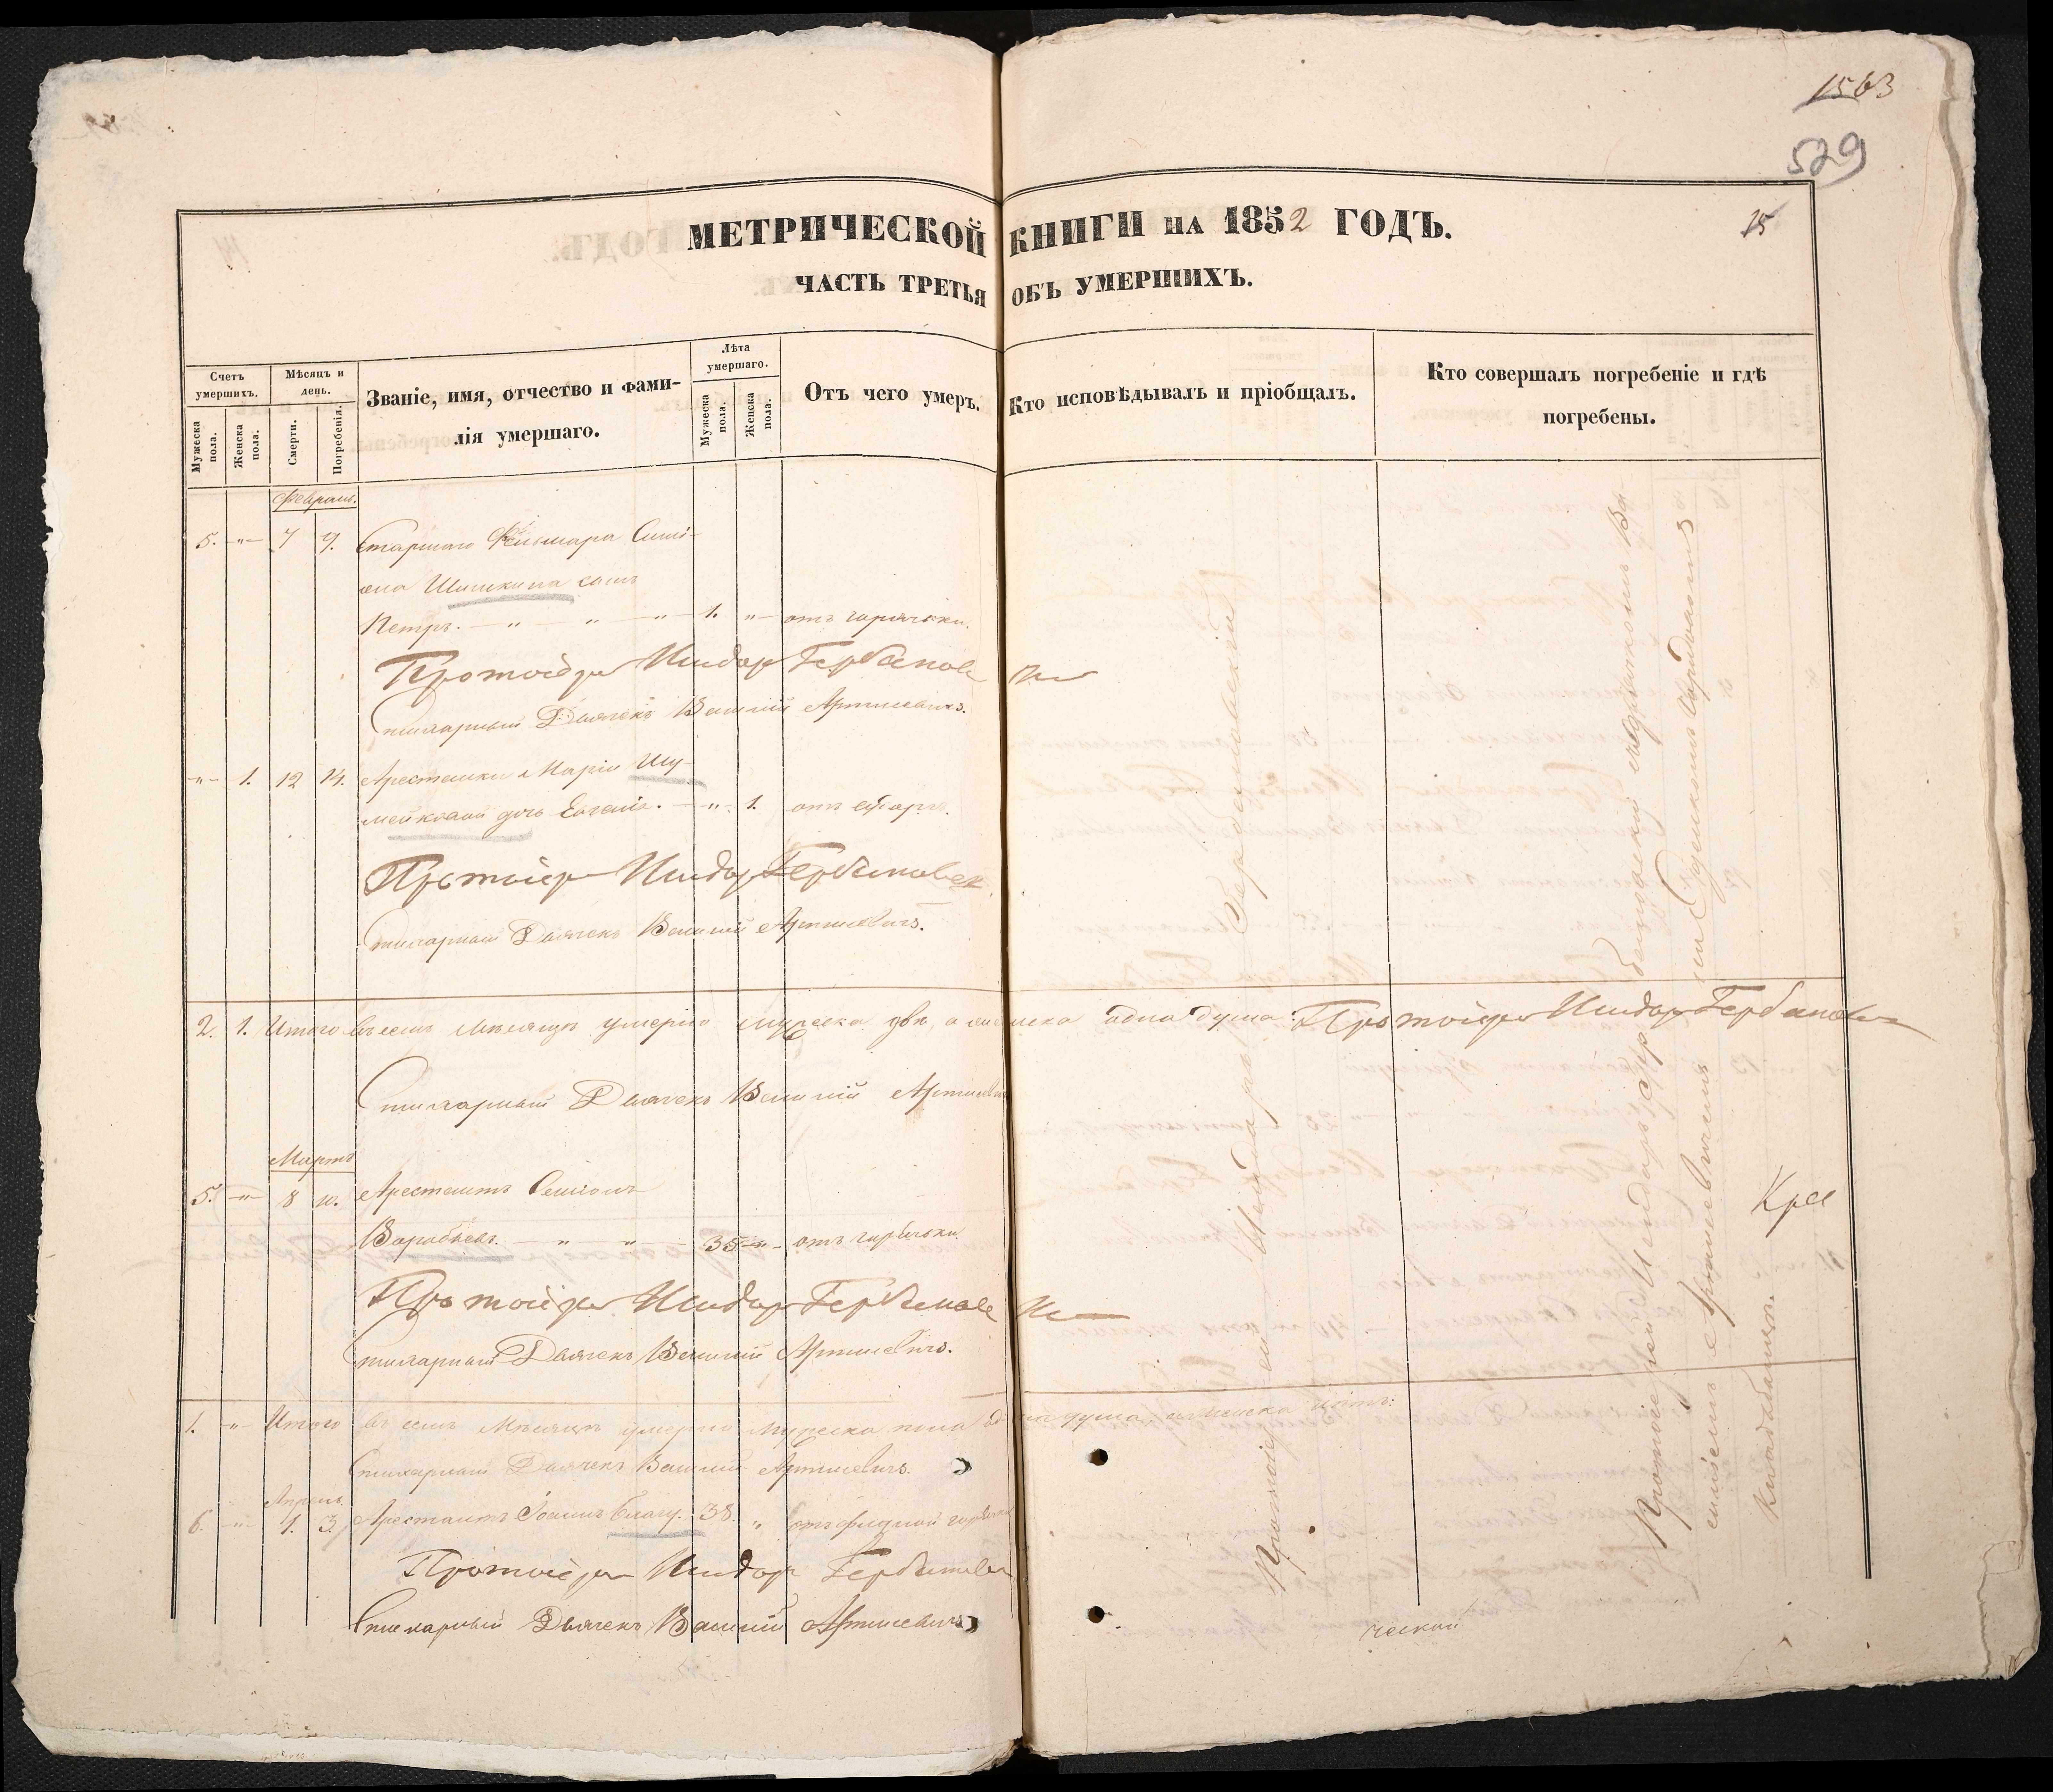 1563
529
15
МЕТРИЧЕСКОЙ КНИГИ НА 1852 ГОДЪ.
ЧАСТЬ ТРЕТЬЯ ОБЪ УМЕРШИХЪ.
Счетъ умершихъ.
Мужеска пола.
Женска пола.
Мѣсяцъ и день.
Смерти.
Погребенія.
Званіе, имя, отчество и фами-
лія умершаго.
Лѣта умершаго.
Мужеска пола.
Женска пола.
Отъ чего умеръ.
Кто исповѣдывалъ и пріобщалъ.
Кто совершалъ погребеніе и гдѣ
погребены.
Февраль.
5. -"- 7 9. Старшаго Фельшара Симі-
она Шишкина сынъ
Петръ. — " — " — " — 1. "- отъ горячки.
Протоіерей Исидоръ Гербановск
Стихарный Дьячекъ Василій Артисевичъ.
-"- 1. 12 14. Арестанки Маріи Шу-
мейковой дочь Евгенія. - " - 1. отъ
Протоіерей Исидоръ Гербановск
Стихарный Дьячекъ Василій Артисевичъ.
2. 1. Итого въ семъ Мѣсяцѣ умерло мужеска двѣ, а женска одна душа. Протоіерей Исидоръ Гербановск
Стихарный Дьячекъ Василій Артисевичъ
Мартъ
5. -"- 8 10. Арестантъ Симіонъ
Воробьевъ. — " — " — 35 -"- отъ горячки.
Протоіерей Исидоръ Гербановск
Стихарный Дьячекъ Василій Артисевичъ.
1. -"- Итого въ семъ Мѣсяцѣ умерло мужеска пола одна душа, а женска нѣтъ:
Стихарный Дьячекъ Василій Артисевичъ.
Апрель.
6. -"- 1. 3. Арестантъ Іоаннъ 38. " отъ горячки
Протоіерей Исидоръ Гербановск
Стихарный Дьячекъ Василій Артисевичъ
Протоіерей Исидоръ Гербановскій
Протоіерей Исидоръ Гербановскій съ Дьячкомъ Ва-
силіемъ Артисевичемъ на Суденскомъ Городскомъ
Кладбищѣ.
Кре
ческой